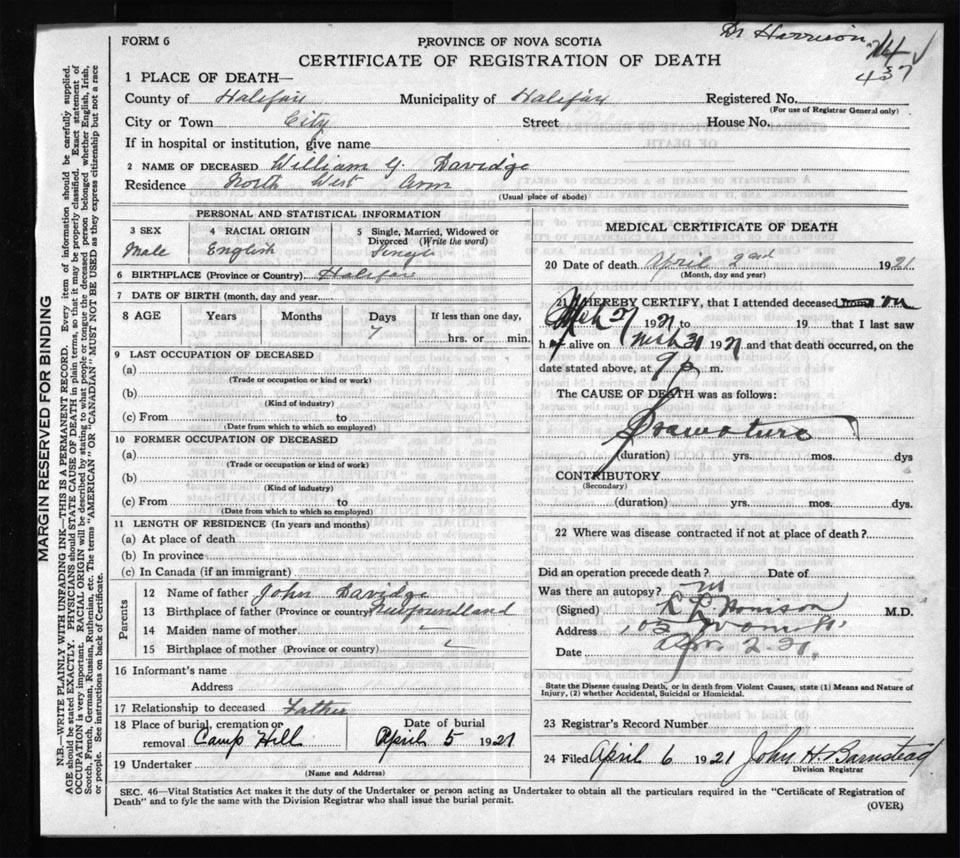 Dr Harrison 24
437
FORM 6
PROVINCE OF NOVA SCOTIA
CERTIFICATE OF REGISTRATION OF DEATH
1 PLACE OF DEATH—
County of Halifax Municipality of Halifax Registered No.
(For use of Registrar General only)
City or Town City Street House No.
If in hospital or institution, give name
2 NAME OF DECEASED William G. Davidge
Residence North West Arm
(Usual place of abode)
PERSONAL AND STATISTICAL INFORMATION
3 SEX Male
4 RACIAL ORIGIN English
5 Single, Married, Widowed or Divorced (Write the word) Single
6 BIRTHPLACE (Province or Country) Halifax
7 DATE OF BIRTH (month, day and year)
8 AGE Years Months Days 7 If less than one day, hrs. or min.
9 LAST OCCUPATION OF DECEASED
(a)
(Trade or occupation or kind or work)
(b)
(Kind of industry)
(c) From to
(Date from which to which so employed)
10 FORMER OCCUPATION OF DECEASED
(a)
(Trade or occupation or kind of work)
(b)
(Kind of industry)
(c) From to
(Date from which to which so employed)
11 LENGTH OF RESIDENCE (In years and months)
(a) At place of death
(b) In province
(c) In Canada (if an immigrant)
Parents
12 Name of father John Davidge
13 Birthplace of father (Province or country) Newfoundland
14 Maiden name of mother
15 Birthplace of mother (Province or country)
16 Informant's name
Address
17 Relationship to deceased Father
18 Place of burial, cremation or removal Camp Hill Date of burial April 5 1921
19 Undertaker
(Name and Address)
MEDICAL CERTIFICATE OF DEATH
20 Date of death April 2nd 1921
(Month, day and year)
21 I HEREBY CERTIFY, that I attended deceased from on
Mch 27 1921 to 19 that I last saw
h alive on Mch 31 1921 and that death occurred, on the
date stated above, at 9 p m.
The CAUSE OF DEATH was as follows:
Premature
(duration) yrs. mos. dys
CONTRIBUTORY
(Secondary)
(duration) yrs. mos. dys.
22 Where was disease contracted if not at place of death?
Did an operation precede death? Date of
Was there an autopsy? no
(Signed) M.D.
Address 105
Date Apr 2. 21.
State the Disease causing Death, or in death from Violent Causes, state (1) Means and Nature of
Injury, (2) whether Accidental, Suicidal or Homicidal.
23 Registrar's Record Number
24 Filed April 6 1921 John H Barnstead
Division Registrar
SEC. 46—Vital Statistics Act makes it the duty of the Undertaker or person acting as Undertaker to obtain all the particulars required in the "Certificate of Registration of
Death" and to fyle the same with the Division Registrar who shall issue the burial permit.
(OVER)
MARGIN RESERVED FOR BINDING
N.B.—WRITE PLAINLY WITH UNFADING INK—THIS IS A PERMANENT RECORD. Every item of information should be carefully supplied.
AGE should be stated EXACTLY. PHYSICIANS should STATE CAUSE OF DEATH in plain terms, so that it may be properly classified. Exact statement of
OCCUPATION is very important. RACIAL ORIGIN will be described by stating to what people or tongue the deceased person belonged whether English, Irish,
Scotch, French, German, Russian, Ruthenian, etc. The terms "AMERICAN" or "CANADIAN" MUST NOT BE USED as they express citizenship but not a race
or people. See instructions on back of Certificate.